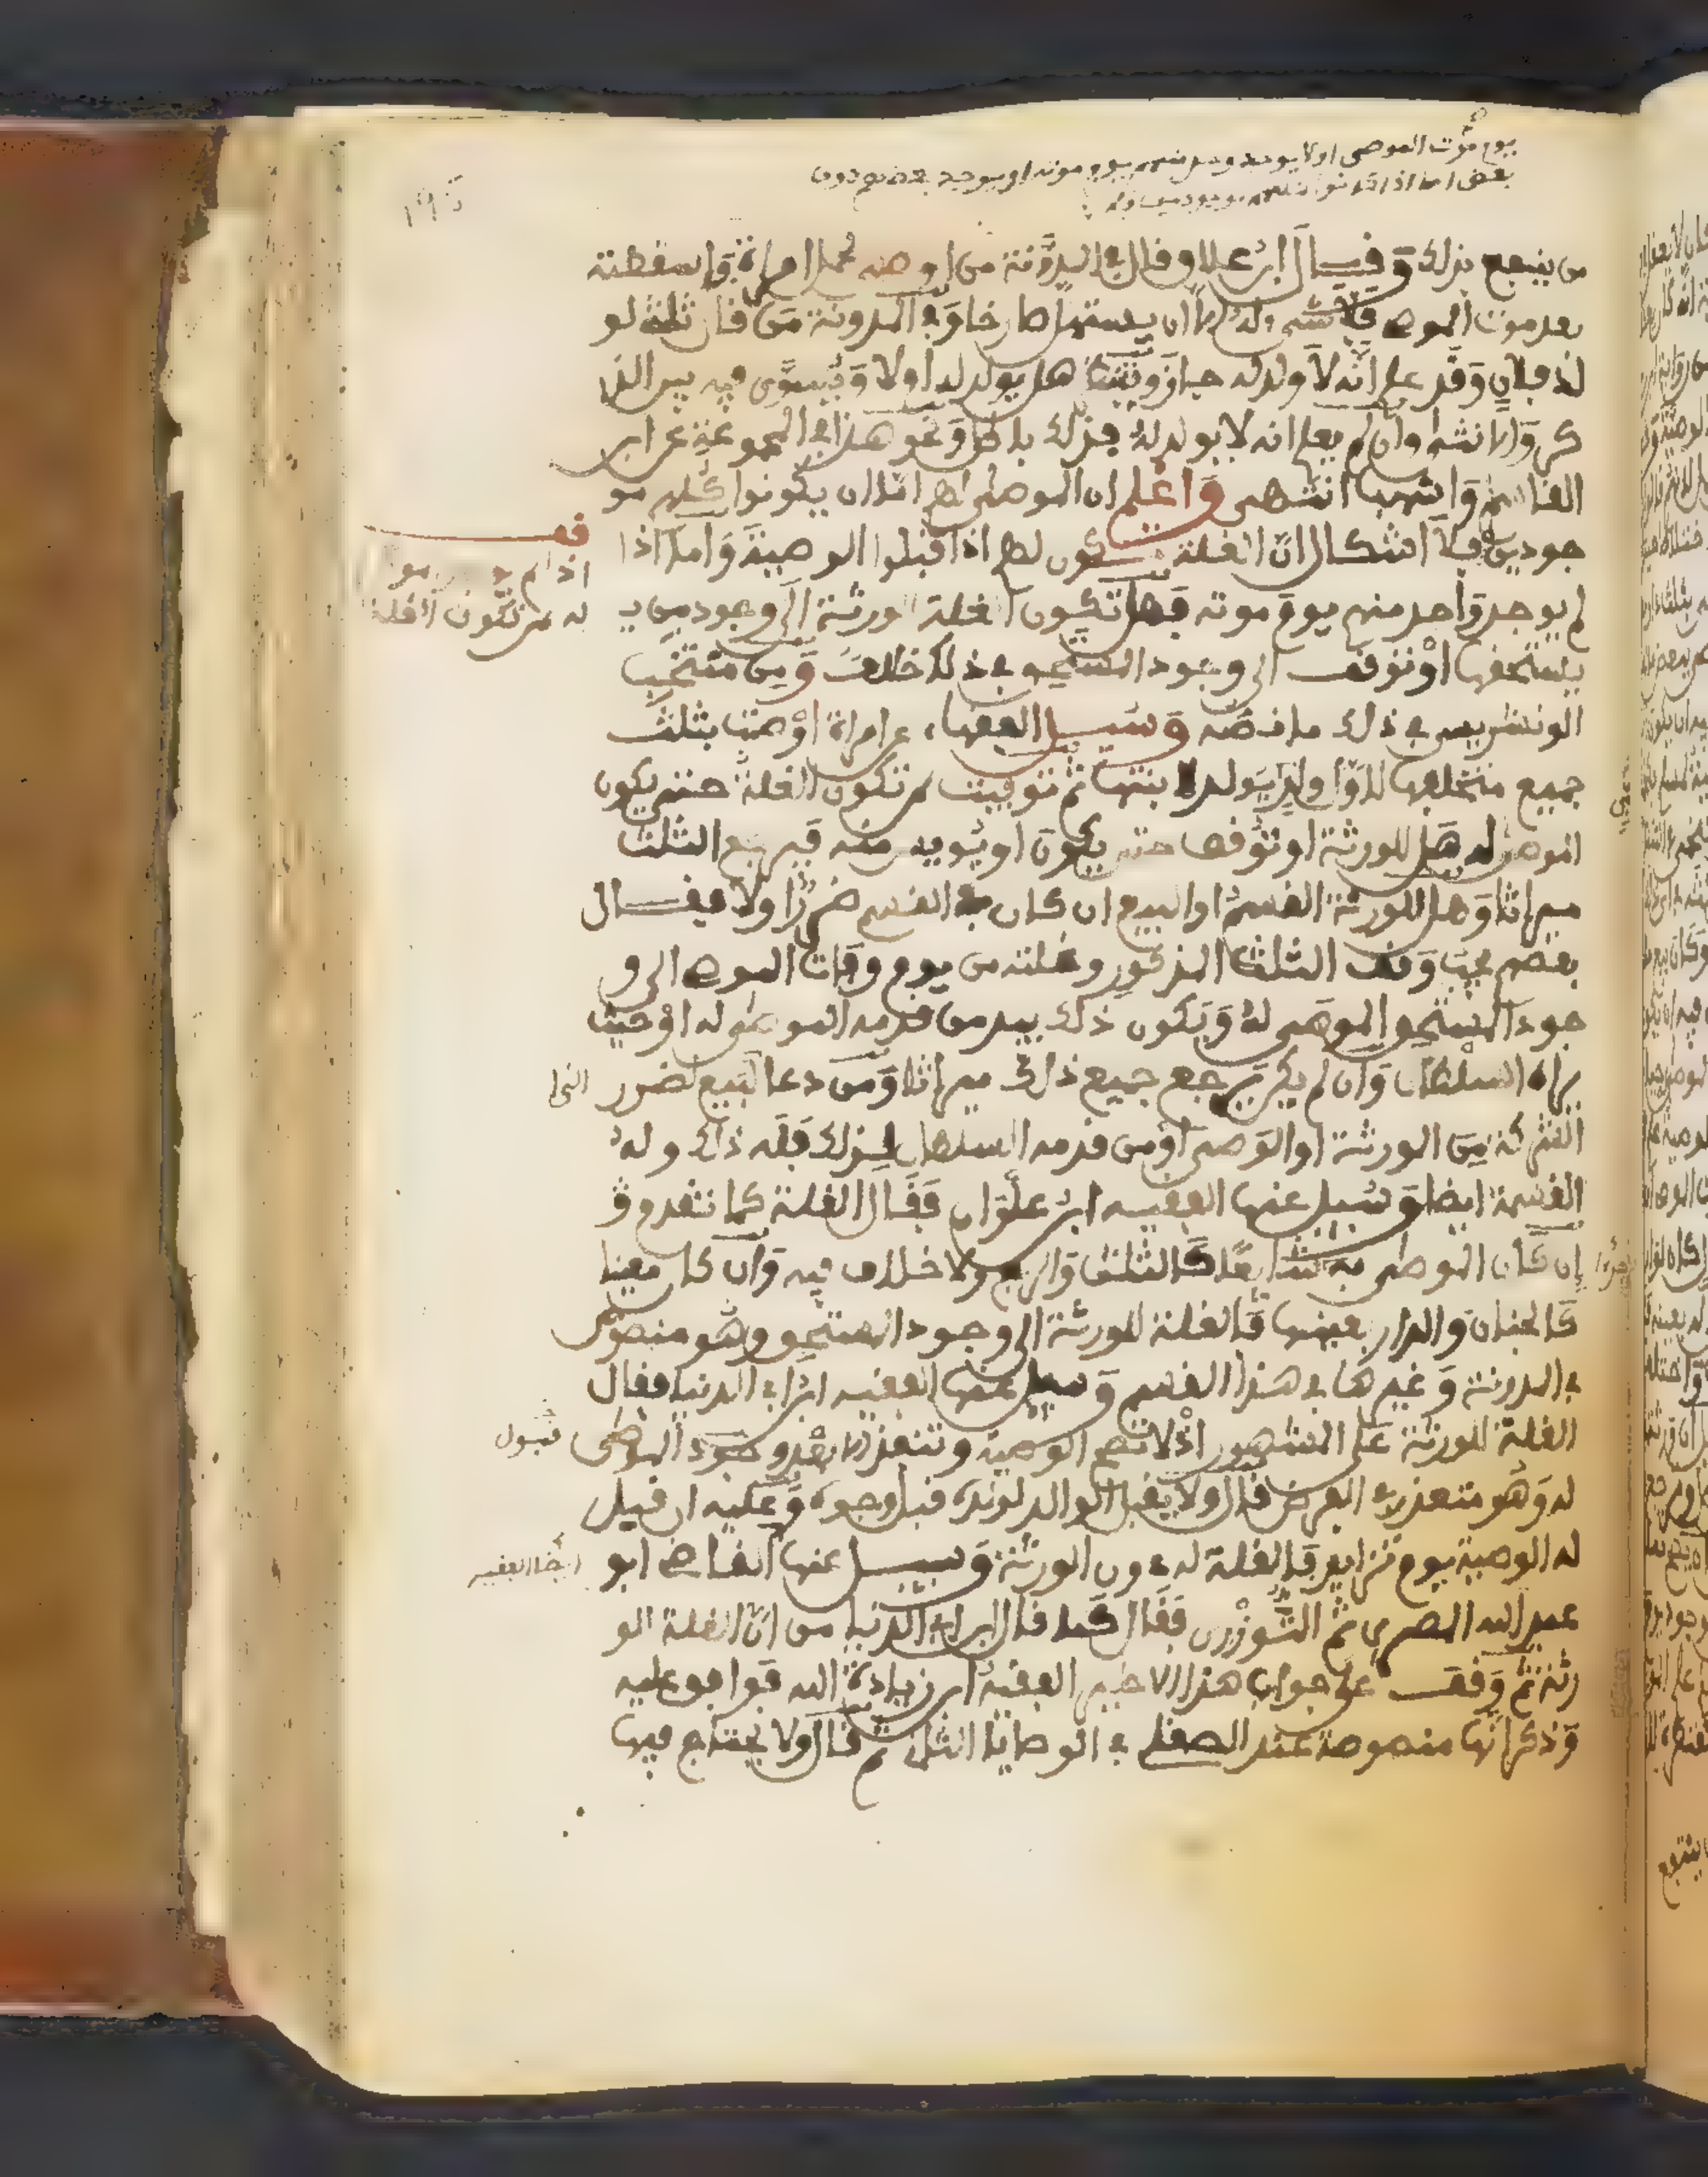 يوم موت الموصي اولا يوجد وحد منهم يوم موته او يوجد بعضهم دون
بعض اما اذا
من ينتفع بذلك وقال ابن علاق قال في المدونة من اوصى لحمل امراة فاسقطته
بعد موت الموصي فلا شيء له الا ان يستهل صارخا وفي المدونة من قال ثلثه لو
لد فلان وقد علم انه لا ولد له جاز وينتظر هل يولد له اولا ويسوى فيه بين الذ
كر والانثى وان لم يعلم انه لا يولد له فذلك باطل ونحو هذا في المجموعة عن ابن
القاسم واشهب انتهى واعلم ان الموصى لهم اما ان يكونوا كلهم مو
جودين فلا اشكال ان الغلة تكون لهم اذا قبلوا الوصية واما اذا
لم يوجد واحد منهم يوم موته فهل تكون الغلة للورثة الى وجود من
يستحقها او توقف الى وجود المستحق في ذلك خلاف ومن منتخب
الونشريسي في ذلك ما نصه وسئل الفقهاء عن امراة اوصت بثلث
جميع متخلفها لاول ولد يولد لابنتها ثم توفيت لمن تكون الغلة حتى يكون
الموصى له هل للورثة او توقف حتى يكون او يويس منه فيرجع الثلث
ميراثا وهل للورثة القسم او البيع ان كان في القسم ضررا اولا فقال
بعضهم يجب وقف الثلث المذكور وغلته من يوم وفات الموصي الى و
جود المستحق الموصى له ويكون ذلك بيد من قدمه الموصي له او حيث
يراه السلطان وان لم يكن يرجع جميع ذلك ميراثا ومن دعا لبيع لضرر
الشركة من الورثة او الوصي او من قدمه السلطان لذلك فله ذلك وله
القسمة ايضا وسئل عنها الفقيه ابن علوان فقال الغلة كما تقدم و
ان كان الموصى به شائعا كالثلث والربع ولا خلاف فيه وان كان معينا
كالجنان والدار بعينها فالغلة للورثة الى وجود المستحق وهو منصوص
في المدونة وغيرها في هذا القسم وسئل عنها الفقيه ابن ابي الدنيا فقال
الغلة للورثة على المشهور اذ لا تصح الوصية وتنفذ الا بعد وجود الموصى
له وهو متعذر في العرض قال ولا يقبل الوالد لولده قبل وجوده وعليه ان قيل
له الوصية يوم تزايد فالغلة له دون الورثة وسئل عنها القاضي ابو
عبد الله المصري ثم التوزري فقال كما قال ابن ابي الدنيا من ان الغلة للو
رثة ثم وقف على جواب هذا الاخير الفقيه ابن زيادة الله فوافق عليه
وذكر انها منصوصة عند الصقلي في الوصايا الثلث ثم قال ولا يحتاج فيها
قف
اذا لم
له لمن تكون الغلة
قبول
ايضا الفقيه